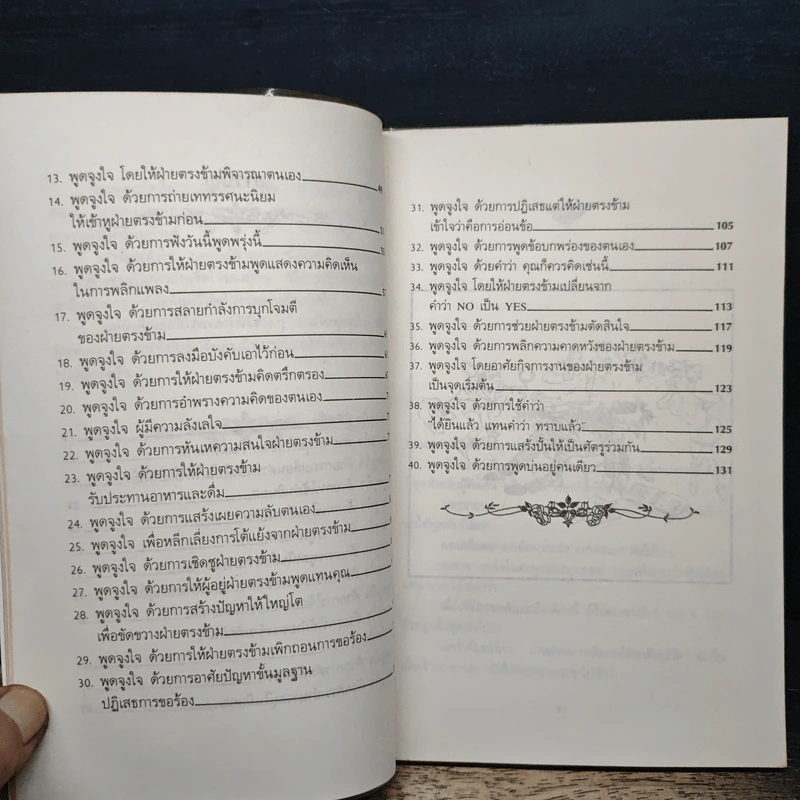 13. พูดจูงใจ โดยให้ฝ่ายตรงข้ามพิจารณาตนเอง 49
14. พูดจูงใจ ด้วยการถ่ายเททรรศนะนิยม
ให้เข้าหูฝ่ายตรงข้ามก่อน
15. พูดจูงใจ ด้วยการฟังวันนี้พูดพรุ่งนี้
16. พูดจูงใจ ด้วยการให้ฝ่ายตรงข้ามพูดแสดงความคิดเห็น
ในการพลิกแพลง
17. พูดจูงใจ ด้วยการสลายกำลังการบุกโจมตี
ของฝ่ายตรงข้าม
18. พูดจูงใจ ด้วยการลงมือบังคับเอาไว้ก่อน
19. พูดจูงใจ ด้วยการให้ฝ่ายตรงข้ามคิดตรึกตรอง
20. พูดจูงใจ ด้วยการอำพรางความคิดของตนเอง
21. พูดจูงใจ ผู้มีความลังเลใจ
22. พูดจูงใจ ด้วยการหันเหความสนใจฝ่ายตรงข้าม
23. พูดจูงใจ ด้วยการให้ฝ่ายตรงข้าม
รับประทานอาหารและดื่ม
24. พูดจูงใจ ด้วยการแสร้งเผยความลับตนเอง
25. พูดจูงใจ เพื่อหลีกเลี่ยงการโต้แย้งจากฝ่ายตรงข้าม
26. พูดจูงใจ ด้วยการเชิดชูฝ่ายตรงข้าม
27. พูดจูงใจ ด้วยการให้ผู้อยู่ฝ่ายตรงข้ามพูดแทนคุณ
28. พูดจูงใจ ด้วยการสร้างปัญหาให้ใหญ่โต
เพื่อขัดขวางฝ่ายตรงข้าม
29. พูดจูงใจ ด้วยการให้ฝ่ายตรงข้ามเพิกถอนการขอร้อง
30. พูดจูงใจ ด้วยการอาศัยปัญหาขั้นมูลฐาน
ปฏิเสธการขอร้อง
31. พูดจูงใจ ด้วยการปฏิเสธแต่ให้ฝ่ายตรงข้าม
เข้าใจว่าคือการอ่อนข้อ 105
32. พูดจูงใจ ด้วยการพูดข้อบกพร่องของตนเอง 107
33. พูดจูงใจ ด้วยคำว่า คุณก็ควรคิดเช่นนี้ 111
34. พูดจูงใจ โดยให้ฝ่ายตรงข้ามเปลี่ยนจาก
คำว่า NO เป็น YES 113
35. พูดจูงใจ ด้วยการช่วยฝ่ายตรงข้ามตัดสินใจ 117
36. พูดจูงใจ ด้วยการพลิกความคาดหวังของฝ่ายตรงข้าม 119
37. พูดจูงใจ โดยอาศัยกิจการงานของฝ่ายตรงข้าม
เป็นจุดเริ่มต้น 123
38. พูดจูงใจ ด้วยการใช้คำว่า
"ได้ยินแล้ว แทนคำว่า ทราบแล้ว" 125
39. พูดจูงใจ ด้วยการแสร้งปั้นให้เป็นศัตรูร่วมกัน 129
40. พูดจูงใจ ด้วยการพูดบ่นอยู่คนเดียว 131